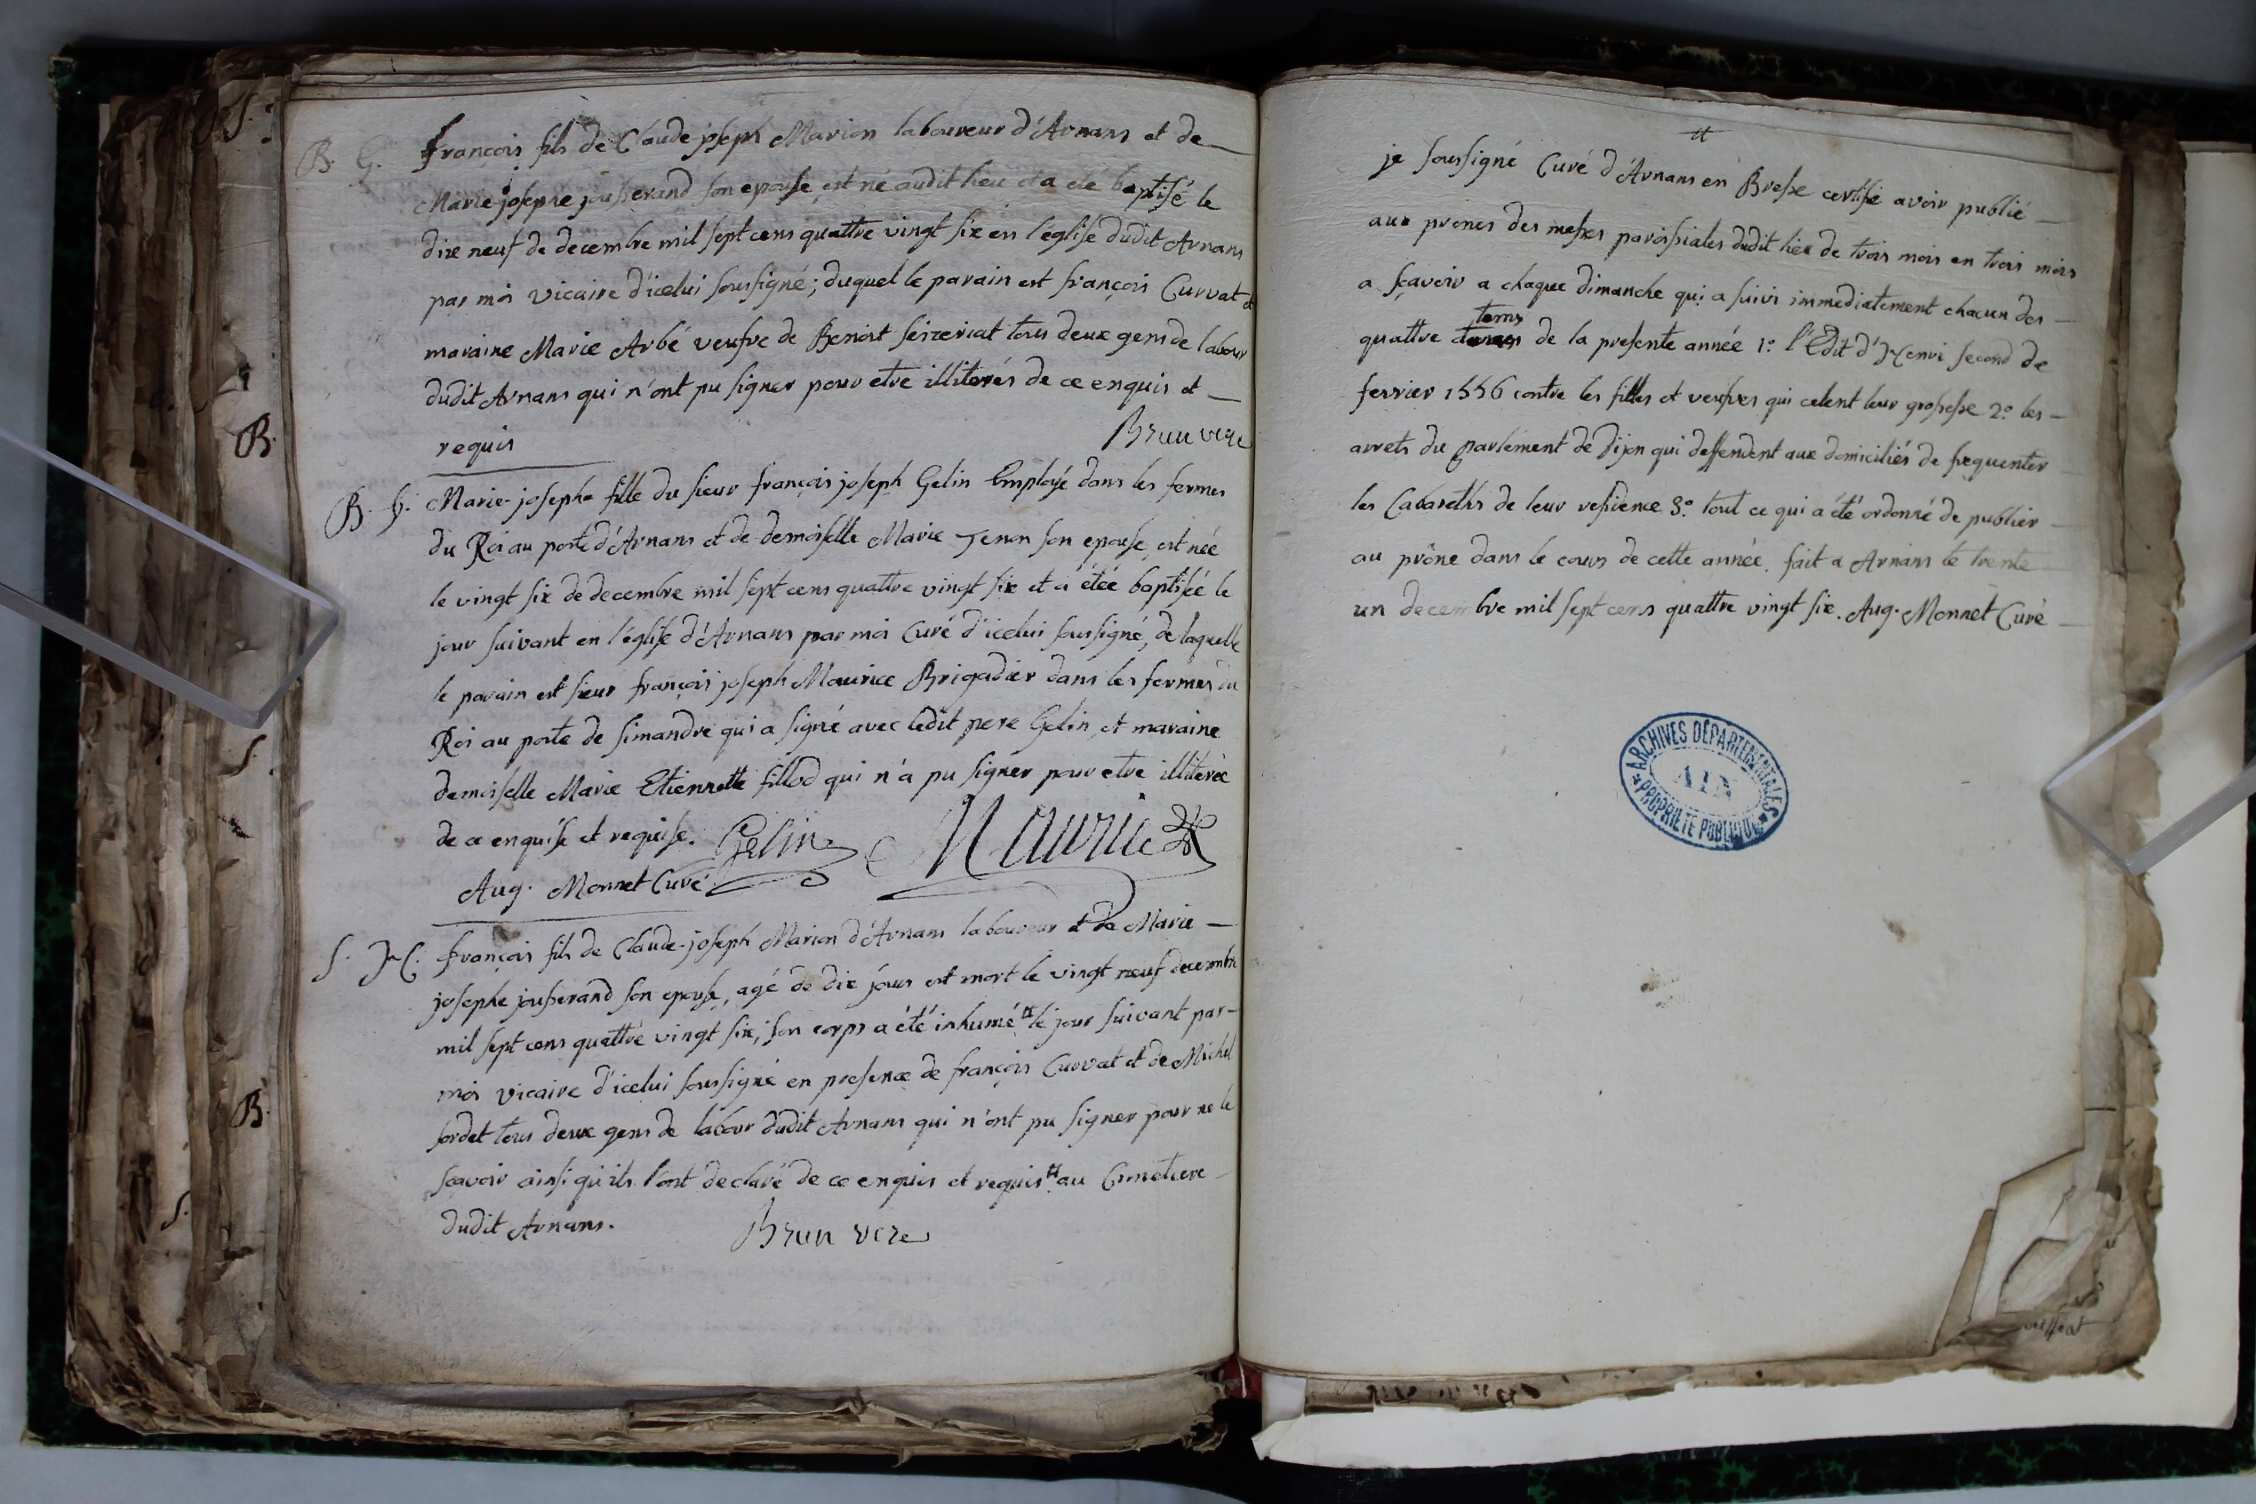 B. G. françois fils de Claude joseph Marion laboureur d'Arnans et de
Marie-josephe jousserand son epouse, est né audit lieu et a été baptisé le
dix neuf de decembre mil sept cens quattre vingt six en l'église dudit Arnans
par moi vicaire d'icelui soussigné; duquel le parain est françois Curvat et
maraine Marie Arbé veufve de Benoit seizeriat tous deux gens de labour
dudit Arnans qui n'ont pu signer pour etre illiterés de ce enquis et
requis Brun vere
B. h. Marie-josephe fille du sieur françois joseph Gelin Employé dans les fermes
du Roi au poste d'Arnans et de demoiselle Marie Tenon son epouse, est née
le vingt six de decembre mil sept cens quattre vingt six et a étée baptisée le
jour suivant en l'église d'Arnans par moi Curé d'icelui soussigné, de laquelle
le parain est sieur françois joseph Maurice Brigadier dans les fermes du
Roi au poste de simandre qui a signé avec ledit pere Gelin, et maraine
demoiselle Marie Etiennette fillod qui n'a pu signer pour etre illiterée
de ce enquise et requise. Gelin Maurice
Aug. Monnet Curé
S. H. françois fils de Claude-joseph Marion d'Arnans laboureur et de Marie
josephe jousserand son epouse, agé de dix jours est mort le vingt neuf decembre
mil sept cens quattre vingt six; son corps a été inhumé # le jour suivant par
moi vicaire d'icelui soussigné en presence de françois Curvat et de Michel
sordet tous deux gens de labour dudit Arnans qui n'ont pu signer pour ne le
sçavoir ainsi qu'ils l'ont declaré de ce enquis et requis # au Cimetiere
dudit Arnans. Brun vere
S.
B.
S.
B.
S.
je soussigné Curé d'Arnans en Bresse certifie avoir publié
aux prones des messes paroissiales dudit lieu de trois mois en trois mois
a sçavoir a chaque dimanche qui a suivi immediatement chacun des
tems
quattre de la presente année 1.° l'Edit d'Henri second de
fevrier 1556 contre les filles et veufves qui celent leur grossesse 2.° les
arrets du parlement de Dijon qui deffendent aux domiciliés de frequenter
les Cabareths de leur residence 3.° tout ce qui a été ordonné de publier
au prône dans le cours de cette année. fait a Arnans le trente
un decembre mil sept cens quattre vingt six. Aug. Monnet Curé
ARCHIVES DÉPARTEMENTALES
AIN
PROPRIÉTÉ PUBLIQUE